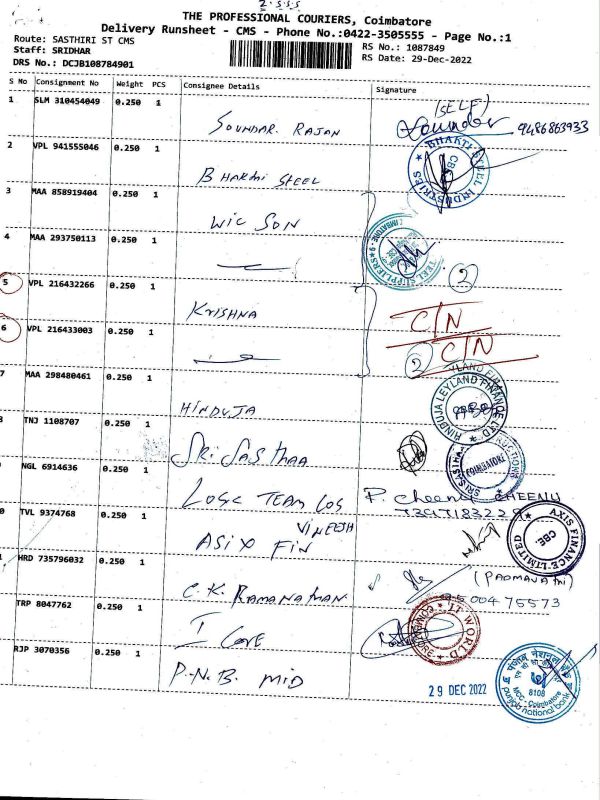 2.S.S.S
THE PROFESSIONAL COURIERS, Coimbatore
Delivery Runsheet - CMS - Phone No.:0422-3505555 - Page No.:1
Route: SASTHIRI ST CMS
RS No.: 1087849
Staff: SRIDHAR
RS Date: 29-Dec-2022
DRS No.: DCJB108784901
S No Consignment No Weight PCS Consignee Details Signature
1 SLM 310454049 0.250 1 SOUNDAR RAJAN (SELF) 9486863933
2 VPL 941555046 0.250 1 BHAKTHI STEEL
BHAKTHI STEEL INDUSTRIES CBE
3 MAA 858919404 0.250 1 WIC SON
4 MAA 293750113 0.250 1 2
5 VPL 216432266 0.250 1 KRISHNA C/N
6 VPL 216433003 0.250 1 2 C/N
7 MAA 298480461 0.250 1 HINDUJA
HINDUJA LEYLAND FINANCE LTD
TNJ 1108707 0.250 1 SRI SASTHAA
COIMBATORE
NGL 6914636 0.250 1 LOGC TEAM LOS P. Cheenu CHEENU
VINEETH
0 TVL 9374768 0.250 1 ASIX FIN
AXIS FINANCE LIMITED CBE
HRD 735796032 0.250 1 C.K. RAMANATHAN (PADMAVATHI)
TRP 8047762 0.250 1 I CARE
IT WORLD
RJP 3070356 0.250 1 P.N.B. MID
29 DEC 2022
पंजाब नैशनल बैंक
8108
MCC - Coimbatore
punjab national bank